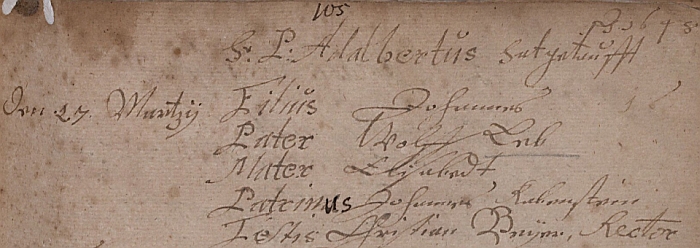 105
1678
H. P. Adalbertus hat getaufft
Den 27. Martzij Filius Johannes
Pater Wolff Leb
Mater Elisabedt
Patrinus Johannes Rabenstein
Testis Christian Beÿer, Rector